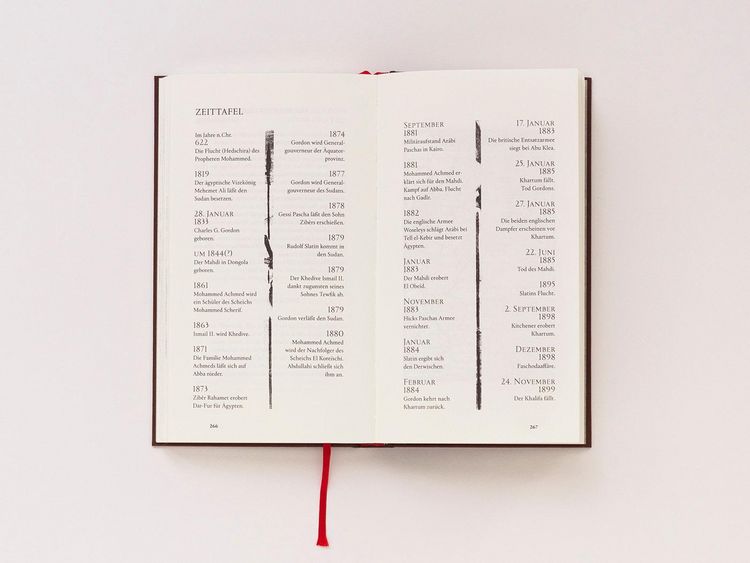 ZEITTAFEL
Im Jahre n. Chr.
622
Die Flucht (Hedschira) des
Propheten Mohammed.
1819
Der ägyptische Vizekönig
Mehemet Ali läßt den
Sudan besetzen.
28. JANUAR
1833
Charles G. Gordon
geboren.
UM 1844(?)
Der Mahdi in Dongola
geboren.
1861
Mohammed Achmed wird
ein Schüler des Scheichs
Mohammed Scherif.
1863
Ismail II. wird Khedive.
1871
Die Familie Mohammed
Achmeds läßt sich auf
Abba nieder.
1873
Zibêr Rahamet erobert
Dar-Fur für Ägypten.
1874
Gordon wird General-
gouverneur der Äquator-
provinz.
1877
Gordon wird General-
gouverneur des Sudans.
1878
Gessi Pascha läßt den Sohn
Zibêrs erschießen.
1879
Rudolf Slatin kommt in
den Sudan.
1879
Der Khedive Ismail II.
dankt zugunsten seines
Sohnes Tewfik ab.
1879
Gordon verläßt den Sudan.
1880
Mohammed Achmed
wird der Nachfolger des
Scheichs El Koreïschi.
Abdullahi schließt sich
ihm an.
266
SEPTEMBER
1881
Militäraufstand Arâbi
Paschas in Kairo.
1881
Mohammed Achmed er-
klärt sich für den Mahdi.
Kampf auf Abba. Flucht
nach Gadîr.
1882
Die englische Armee
Wolseleys schlägt Arâbi bei
Tell el-Kebir und besetzt
Ägypten.
JANUAR
1883
Der Mahdi erobert
El Obeïd.
NOVEMBER
1883
Hicks Paschas Armee
vernichtet.
JANUAR
1884
Slatin ergibt sich
den Derwischen.
FEBRUAR
1884
Gordon kehrt nach
Khartum zurück.
17. JANUAR
1883
Die britische Entsatzarmee
siegt bei Abu Klea.
25. JANUAR
1885
Khartum fällt.
Tod Gordons.
27. JANUAR
1885
Die beiden englischen
Dampfer erscheinen vor
Khartum.
22. JUNI
1885
Tod des Mahdi.
1895
Slatins Flucht.
2. SEPTEMBER
1898
Kitchener erobert
Khartum.
DEZEMBER
1898
Faschodaaffäre.
24. NOVEMBER
1899
Der Khalifa fällt.
267